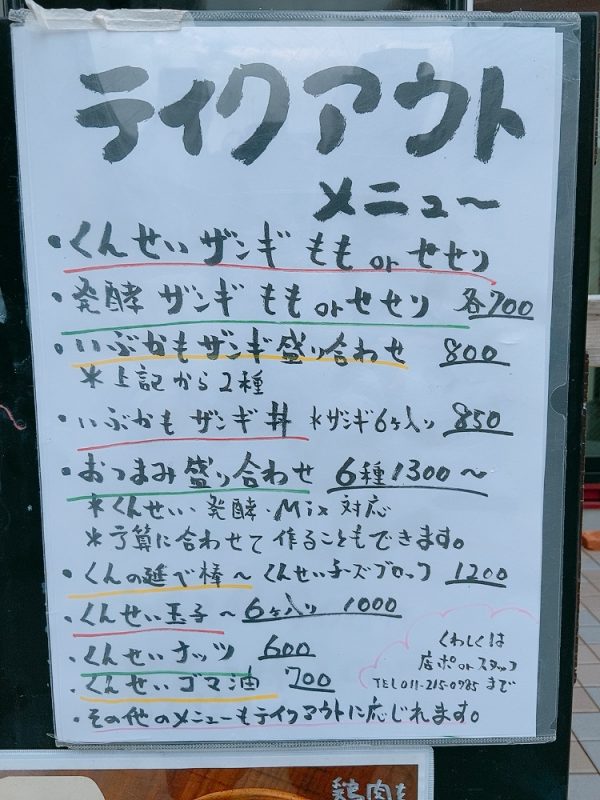 テイクアウト
メニュー
・くんせいザンギ ももorセセリ
・発酵 ザンギ ももorセセリ 各700
・いぶかもザンギ盛り合わせ 800
＊上記から2種
・いぶかもザンギ丼 ＊ザンギ6ヶ入り 850
・おつまみ盛り合わせ 6種1300〜
＊くんせい・発酵・Mix対応
＊予算に合わせて作ることもできます。
・くんの延べ棒〜くんせいチーズブロック 1200
・くんせい玉子〜6ヶ入り 1000
・くんせいナッツ 600
・くんせいゴマ油 700
・その他のメニューもテイクアウトに応じれます。
くわしくは
店ポorスタッフ
TEL 011-215-0785 まで
鶏肉も